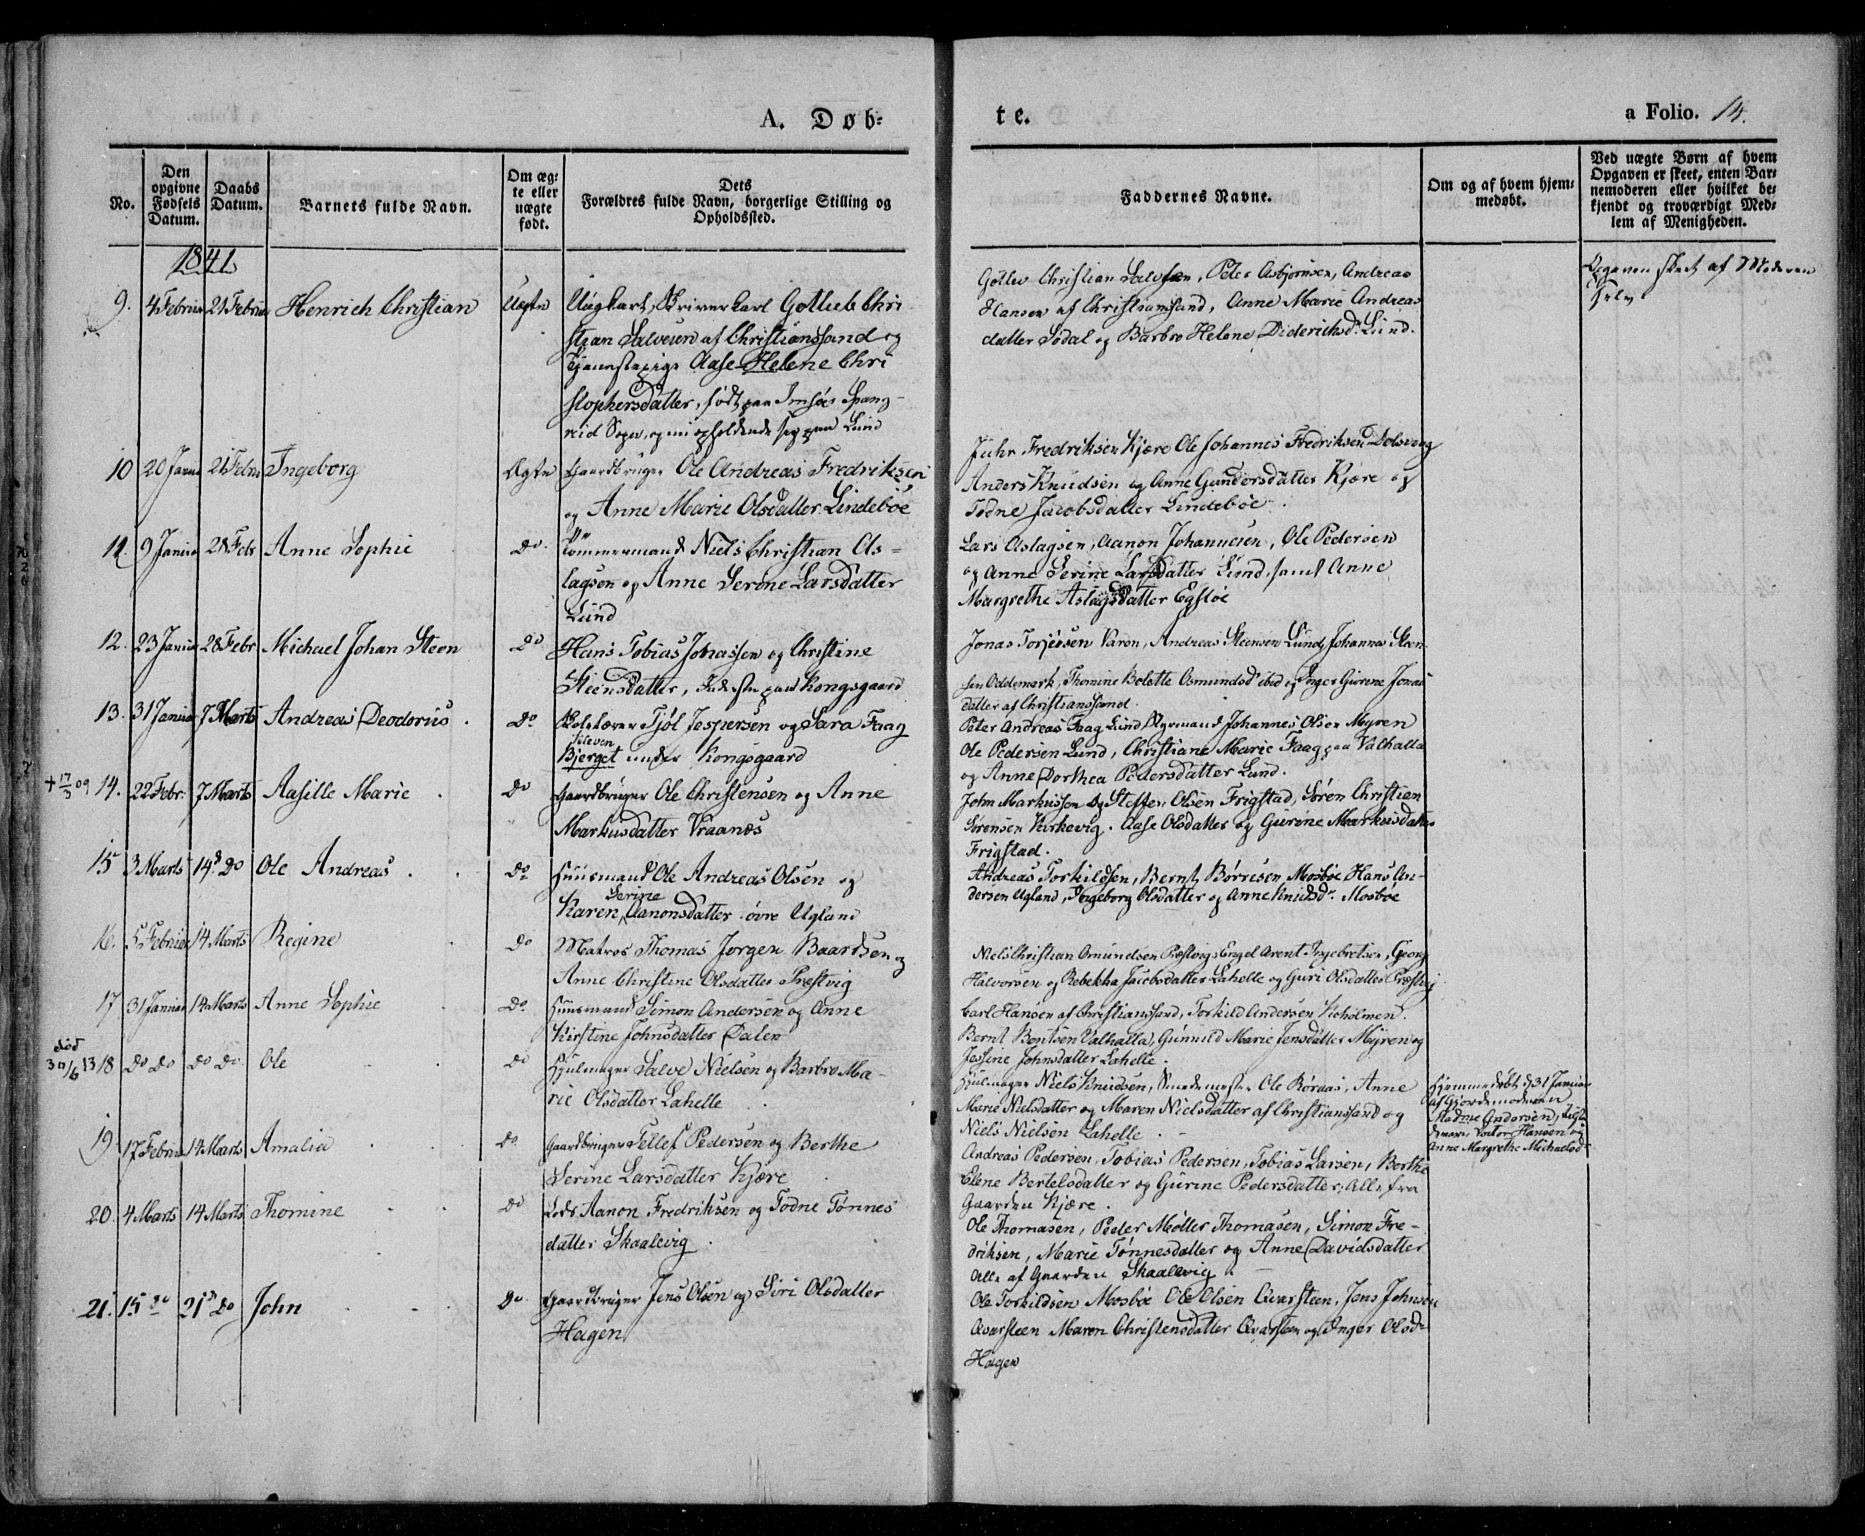 A. Døb-
te.
a Folio. 14.
No.
Den opgivne Fødsels Datum.
Daabs Datum.
Barnets fulde Navn.
Om æg-
te eller
uægte
født.
Dets
Forældres fulde Navn, borgerlige Stilling og
Opholdssted.
Faddernes Navne.
Om og af hvem hjem-
medøbt.
Ved uægte Børn af hvem
Opgaven er skeet, enten Bar-
nemoderen eller hvilket be-
kjendt og troværdigt Med-
lem af Menigheden.
1841
9. 4 Februar 21 Februar Henrich Christian Uægte Ungkarl, Skriver Carl Gotlieb Chri
stian Salvesen af Christianssand og
Tjenestepige Aase Helene Chri
stophersdatter, født paa Imsöe Spang-
reid Sogn, og nu opholdende sig paa Lund
Gotlieb Christian Salvesen, Peter Asbjørnsen, Andreas
Hansen af Christianssand, Anne Marie Andreas
datter Sødal og Barbro Helene Diderichsd. Lund.
Opgaven skeet af Moderen
selv
10 20 Janua 21 Febru Ingeborg Ægte Gaardbruger Ole Andreas Fredriksen
og Anne Marie Olsdatter Lindebøe
Fredriksen Kjære Ole Johannes Fredriksen
Anders Knudsen og Anne Gundersdatter Kjære og
Todne Jacobsdatter Lindebøe
11. 9 Januar 28 Febr Anne Sophie Do. Tömmermand Niels Christian As-
lagsen og Anne Serine Larsdatter
Lund
Lars Aslagsen, Aanon Johannesen, Ole Pedersen
og Anne Serine Larsdatter Lund, samt Anne
Margrethe Aslagsdatter Egsløe
12. 23 Januar 28 Febr Michael Johan Steen Do Hans Tobias Jonassen og Christine
Steensdatter, Inderste paa Kongsgaard
Jonas Torjesen Varøn, Andreas Steensen Lund, Johannes Steen-
sen Oddemark, Thomine Bolette Osmundsd ibid og Inger Gurine Jonas
datter af Christianssand.
13. 31 Januar 7 Marts Andreas Deodorus. Do Skolelærer Tjöl Jespersen og Sara Faag
Bjerget under Kongsgaard
Peter Andreas Faag Lund, Styrmand Johannes Olsen Myren
Ole Pedersen Lund, Christiane Marie Faag paa Valhalla
og Anne Dorthea Pedersdatter Lund.
+ 17/3 09 14. 22 Febr. 7 Marts Aasille Marie Do Gaardbruger Ole Christensen og Anne
Markusdatter Vraanæs
John Markussen og Steffen Olsen Frigstad, Søren Christian
Sørensen Kirkevig. Aase Olsdatter og Gurine Markusdatter
Frigstad.
15 3 Marts 14d Do Ole Andreas Do Huusmand Ole Andreas Olsen og
Karen Serine Aanonsdatter øvre Ugland
Andreas Torkildsen, Bernt Børresen Mosbøe Hans An-
dersen Ugland, Ingeborg Olsdatter og Anne Knudsd. Mosbøe
16. 5 Februar 14 Marts Regine Do Matros Thomas Jørgen Baardsen og
Anne Christine Olsdatter Præstvig
Niels Christian Omundsen Præstvig, Engel Arent Ingebretsen, Georg
Halvorsen og Rebekka Jacobsdatter Lahelle og Guri Olsdatter Præstvig
17 31 Januar 14 Marts Anne Sophie Do. Huusmand Simon Andersen og Anne
Kirstine Johnsdatter Dalen
Carl Hansen af Christianssand, Torkild Andersen Vigholmen.
Bernt Bentsen Valhalla, Gunnild Marie Jensdatter Myren og
Jessine Johnsdatter Lahelle.
død
30/6 13 18 Do Do Do Do. Ole Do Hjulmager Salve Nielsen og Barbro Ma-
rie Olsdatter Lahelle
Hjulmager Niels Knudsen, Smedemester Ole Røraas, Anne
Marie Nielsdatter og Maren Nielsdatter af Christianssand og
Niels Nielsen Lahelle.
Hjemmedøbt d 31 Januar
af Gjordemoderen
Madme Andersen,
Hansen og
Anne Margrethe Michaelsd
19 17 Februar 14 Marts Amalia Do. Gaardbruger Tellef Pedersen og Berthe
Serine Larsdatter Kjære
Andreas Pedersen, Tobias Pedersen, Tobias Larsen, Berthe
Elene Bertelsdatter og Gurine Pedersdatter, Alle fra
Gaarden Kjære.
20. 4 Marts 14 Marts Thomine Do Lods Aanon Fredriksen og Todne Tønnes
datter Skaalevig.
Ole Thomasen, Peder Møller Thomasen, Simon Fre-
driksen, Marie Tønnesdatter og Anne Davidsdatter
Alle af Gaarden Skaalevig.
21. 15 do 21d do John Do. Gaardbruger Jens Olsen og Siri Olsdatter
Hagen
Ole Torkildsen Mosbøe Ole Olsen Qvarsteen, Jens Johnsen
Qvarsteen Maren Christensdatter Qvarsteen og Inger Olsd.
Hagen